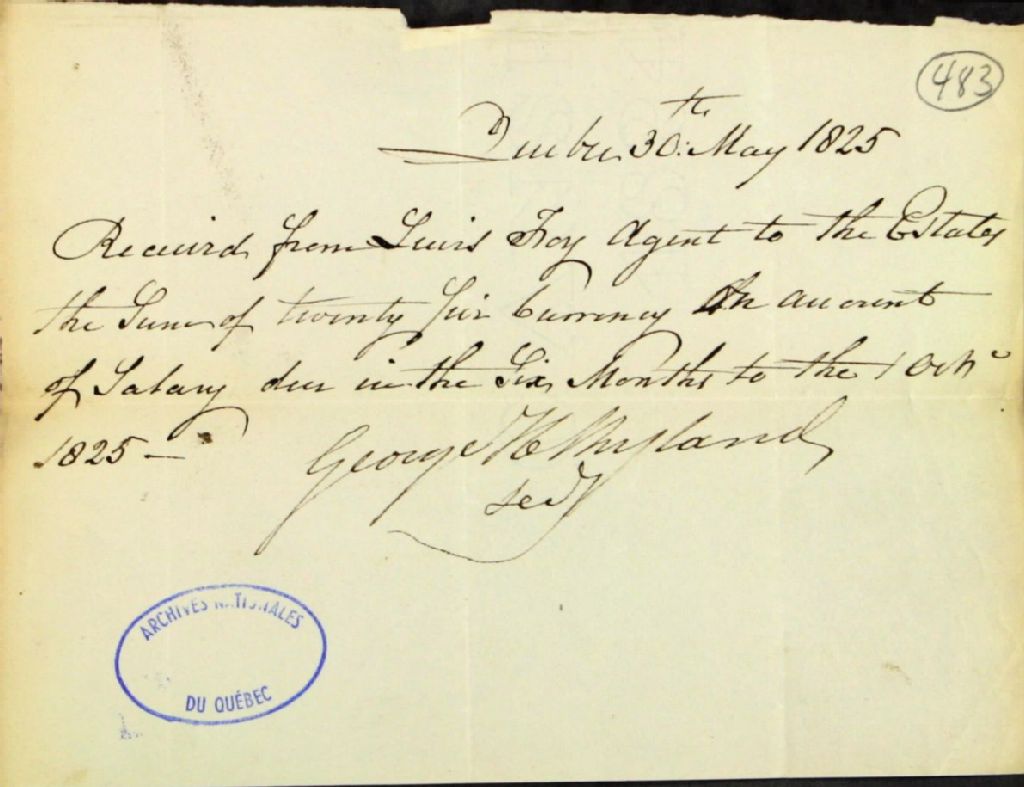 483
Quebec 30th May 1825
Received from Lewis Foy Agent to the Estates
the Sum of twenty five Currency on account
of Salary due in the Six Months to the 1 Octr
1825 —
George H Ryland
Secy
ARCHIVES NATIONALES
DU QUÉBEC